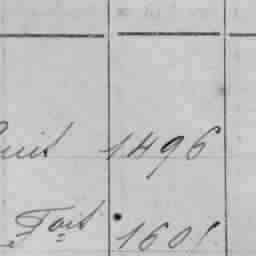 uit 1496
Toit 1601